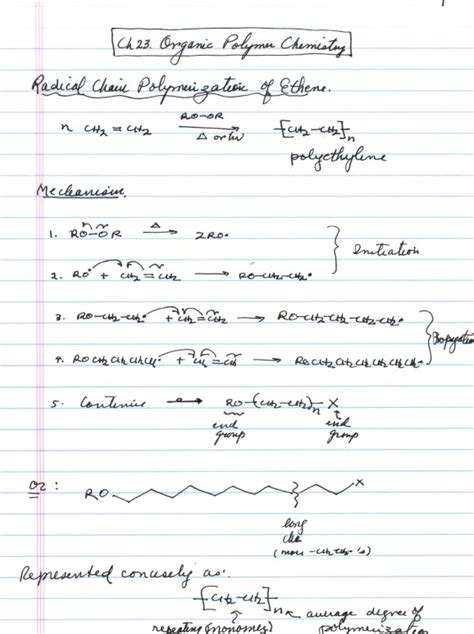 Ch 23. Organic Polymer Chemistry
Radical Chain Polymerization of Ethene.
n CH2=CH2 RO-OR Δ or hν [CH2-CH2]n
polyethylene
Mechanism.
1. RO-OR Δ → 2RO•
2. RO• + CH2=CH2 → RO-CH2-CH2• Initiation
3. RO-CH2-CH2• + CH2=CH2 → RO-CH2-CH2-CH2-CH2•
4. ROCH2CH2CH2CH2• + CH2=CH2 → ROCH2CH2CH2CH2CH2CH2• Propagation
5. Continue → RO-(CH2-CH2)n-X
end group end group
or: RO X
long
(more -CH2-CH2-'s)
Represented concisely as:
[CH2-CH2]n ← average degree of
repeating (monomer) polymerization